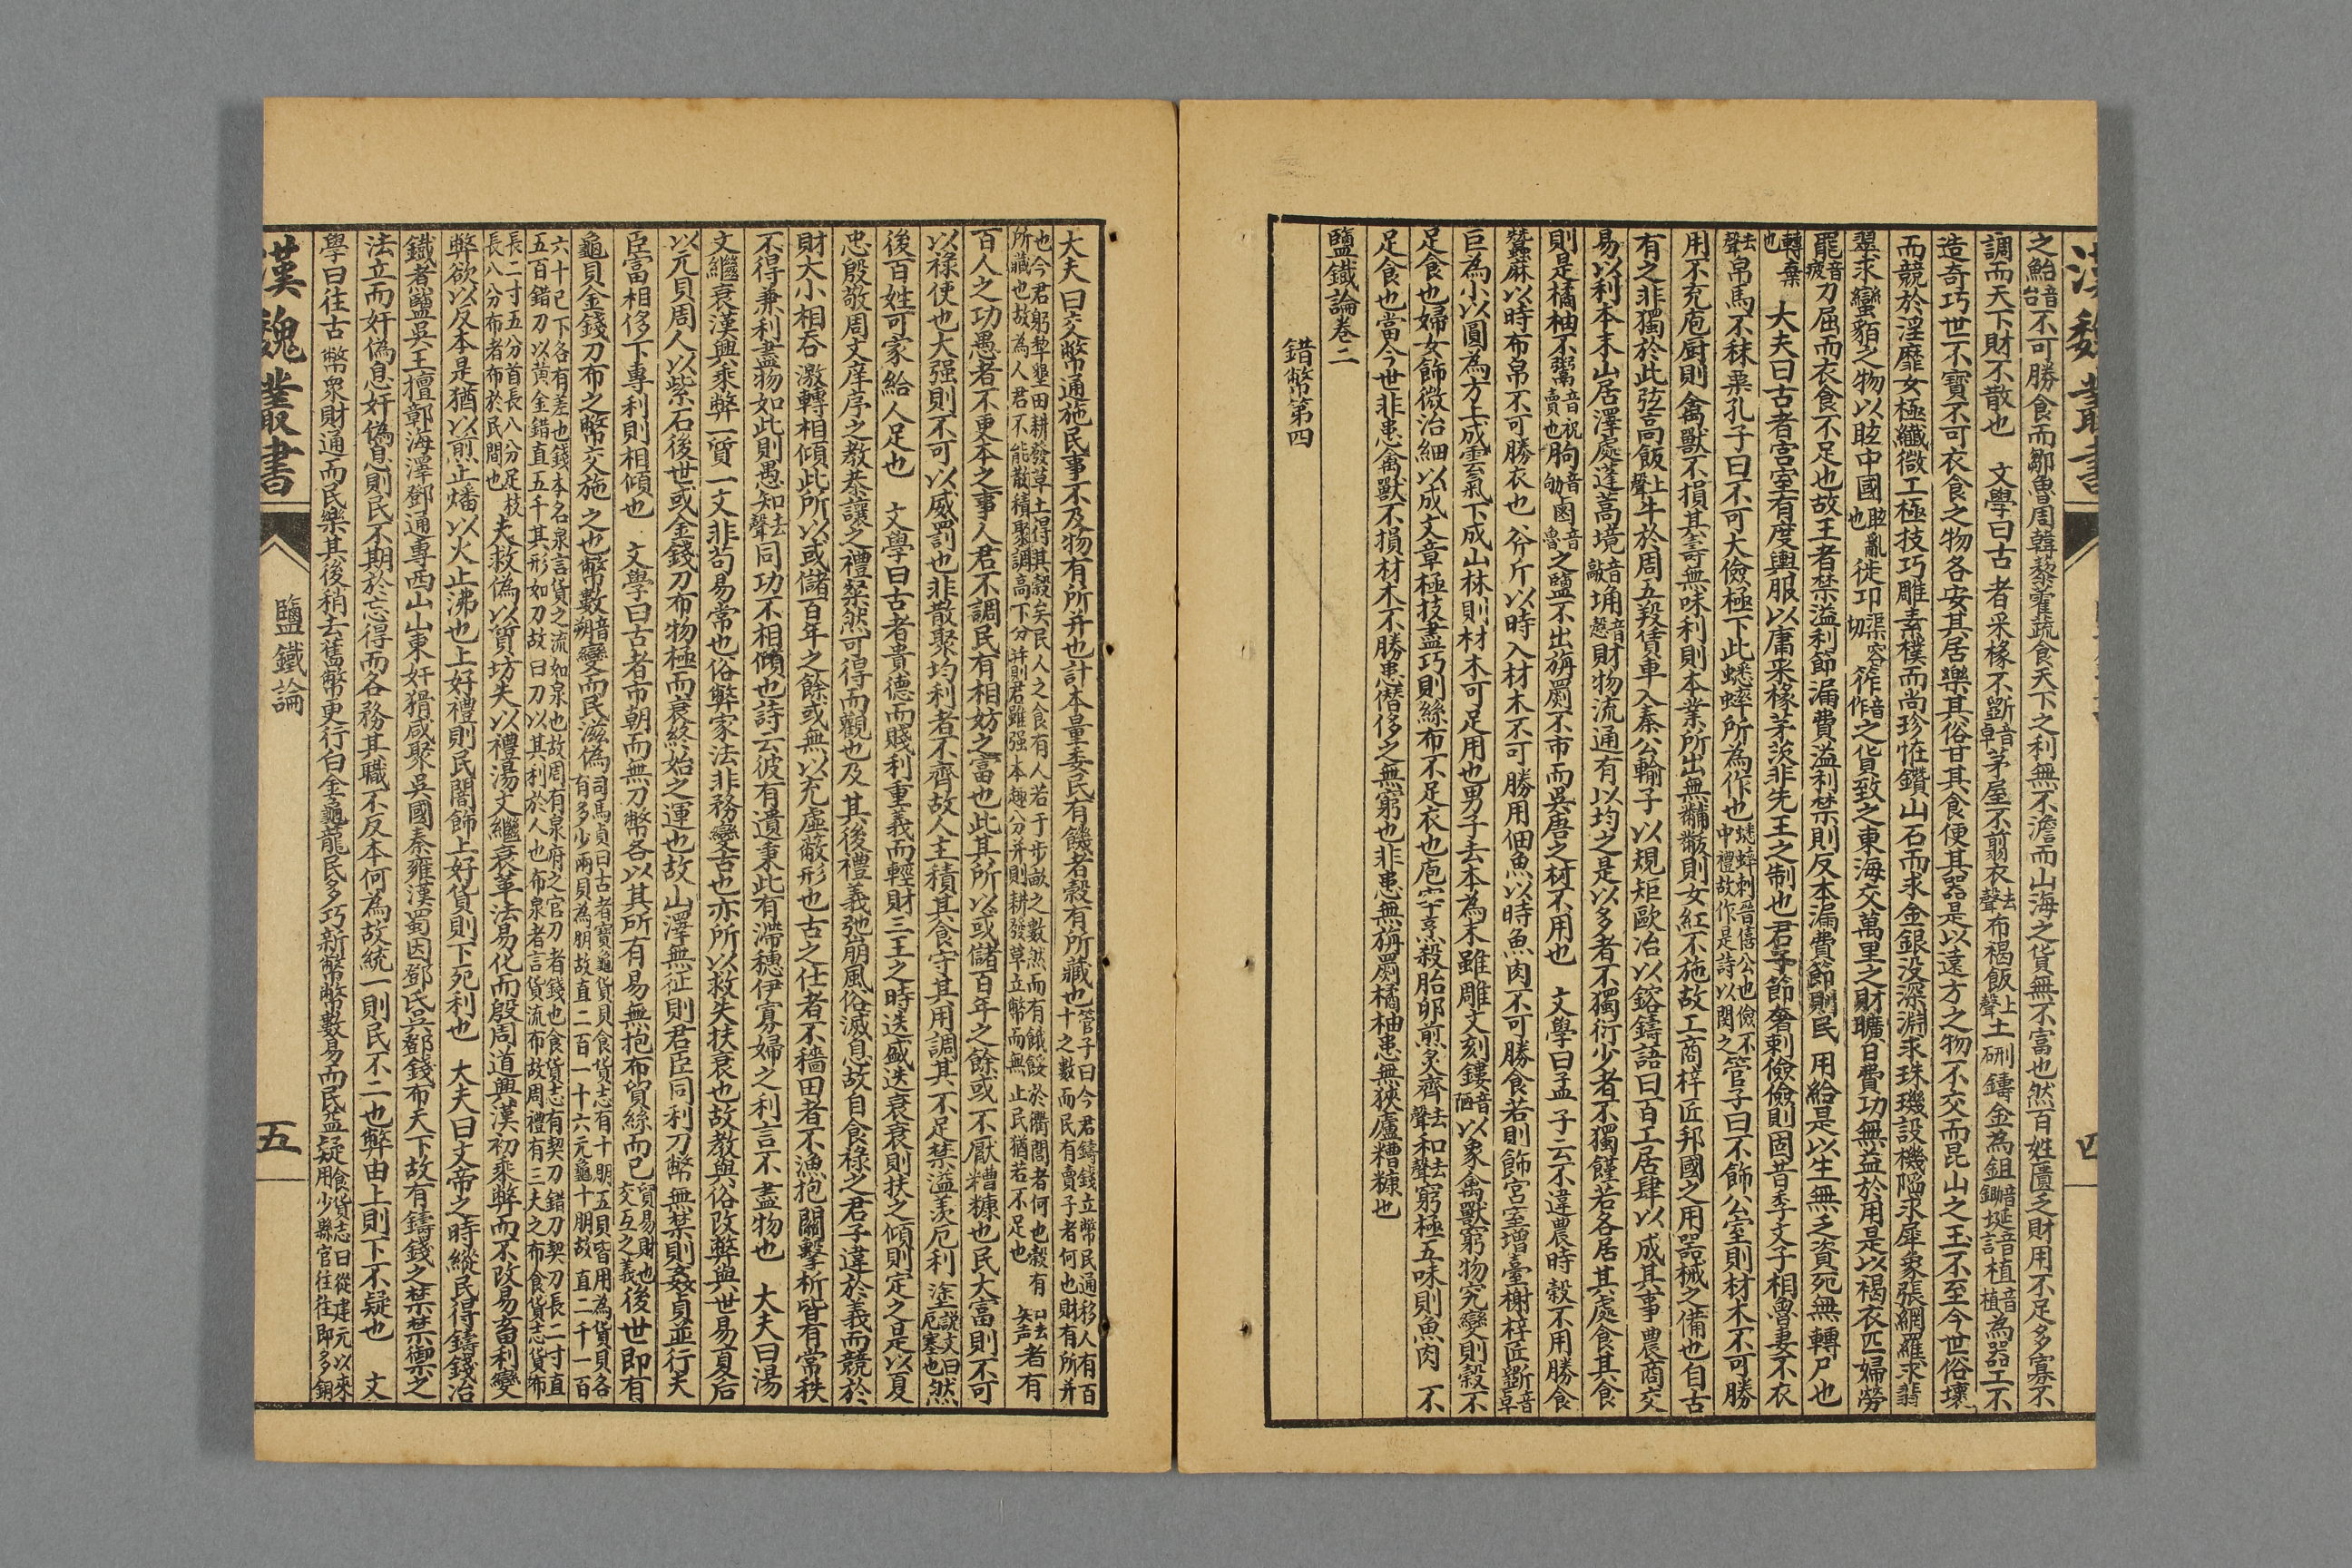 漢魏叢書
四
之鮐音台不可勝食而鄒魯周韓藜藿蔬食天下之利無不澹而山海之貨無不富也然百姓匱乏財用不足多寡不
調而天下財不散也　文學曰古者采椽不斲音卓茅屋不翦衣去聲布褐飯上聲土硎鑄金為鉏音鋤埏音植音為器工不
造奇巧世不寶不可衣食之物各安其居樂其俗甘其食便其器是以遠方之物不交而昆山之玉不至今世俗壞
而競於淫靡女極纖微工極技巧雕素樸而尚珍恠鑽山石而求金銀沒深淵求珠璣設機陷求犀象張網羅求翡
翠求蠻貊之物以眩中國眩亂也徙邛渠容切筰音作之貨致之東海交萬里之財曠日費功無益於用是以褐衣匹婦勞
罷音疲力屈而衣食不足也故王者禁溢利節漏費溢利禁則反本漏費節則民用給是以生無乏資死無轉尸也
轉棄也　大夫曰古者宮室有度輿服以庸采椽茅茨非先王之制也君子節奢刺儉儉則固昔季文子相魯妻不衣
去聲帛馬不秣粟孔子曰不可大儉極下此蟋蟀所為作也蟋蟀刺晉僖公也儉不中禮故作是詩以閔之管子曰不飾公室則材木不可勝
用不充庖厨則禽獸不損其壽無味利則本業所出無黼黻則女紅不施故工商梓匠邦國之用器械之備也自古
有之非獨於此弦高飯上聲牛於周五羖賃車入秦公輸子以規矩歐冶以鎔鑄語曰百工居肆以成其事農商交
易以利本末山居澤處蓬蒿墝音敲埆音愨財物流通有以均之是以多者不獨衍少者不獨饉若各居其處食其食
則是橘柚不鬻音祝賣也朐音劬鹵音魯之鹽不出旃罽不市而吳唐之材不用也　文學曰孟子云不違農時穀不用勝食
蠶麻以時布帛不可勝衣也斧斤以時入材木不可勝用佃魚以時魚肉不可勝食若則飾宮室增臺榭梓匠斲音卓
巨為小以圓為方上成雲氣下成山林則材木可足用也男子去本為末雖雕文刻鏤音陋以象禽獸窮物究變則穀不
足食也婦女飾微治細以成文章極技盡巧則絲布不足衣也庖宰烹殺胎卵煎炙齊去聲和去聲窮極五味則魚肉不
足食也當今世非患禽獸不損材木不勝患僭侈之無窮也非患無旃罽橘柚患無狹廬糟糠也
鹽鐵論卷二
錯幣第四
大夫曰交幣通施民事不及物有所并也計本量委民有饑者穀有所藏也管子曰今君鑄錢立幣民通移人有百十之數而民有賣子者何也財有所并
也今君躬犂墾田耕發草土得其穀矣民人之食有人若于步畝之數然而有餓餒於衢閭者何也穀有所藏也故為人君不能散積聚調高下分并則君雖强本趣八分并則耕發草立幣而無止民猶若不足也知去声者有
百人之功愚者不更本之事人君不調民有相妨之富也此其所以或儲百年之餘或不厭糟糠也民大富則不可
以祿使也大强則不可以威罰也非散聚均利者不齊故人主積其食守其用調其不足禁溢羡厄利塗說文曰厄塞也然
後百姓可家給人足也　文學曰古者貴德而賤利重義而輕財三王之時迭盛迭衰衰則扶之傾則定之是以夏
忠殷敬周文庠序之教恭讓之禮粲然可得而觀也及其後禮義弛崩風俗滅息故自食祿之君子違於義而競於
財大小相吞激轉相傾此所以或儲百年之餘或無以充虛蔽形也古之仕者不穡田者不漁抱關擊柝皆有常秩
不得兼利盡物如此則愚知去聲同功不相傾也詩云彼有遺秉此有滯穗伊寡婦之利言不盡物也　大夫曰湯
文繼衰漢興乘弊一質一文非苟易常也俗弊家法非務變古也亦所以救失扶衰也故教與俗改弊與世易夏后
以元貝周人以紫石後世或金錢刀布物極而衰終始之運也故山澤無征則君臣同利刀幣無禁則姦貞並行夫
臣富相侈下專利則相傾也　文學曰古者市朝而無刀幣各以其所有易無抱布貿絲而已貿易財也交互之義後世即有
龜貝金錢刀布之幣交施之也幣數音朔變而民滋偽司馬貞曰古者寶龜貨貝食貨志有十朋五貝皆用為貨貝各有多少兩貝為朋故直二百一十六元龜十朋故直二千一百
六十已下各有差也錢本名泉言貨之流如泉也故周有泉府之官刀者錢也食貨志有契刀錯刀契刀長二寸直五百錯刀以黃金錯直五千其形如刀故曰刀以其利於人也布泉者言貨流布故周禮有三夫之布食貨志貨布
長二寸五分首長八分足枝長八分布者布於民間也夫救偽以質坊失以禮湯文繼衰革法易化而殷周道興漢初乘弊而不改易畜利變
弊欲以反本是猶以煎止燔以火止沸也上好禮則民闇飾上好貨則下死利也　大夫曰文帝之時縱民得鑄錢冶
鐵者鹽吳王擅鄣海澤鄧通專西山山東奸猾咸聚吳國秦雍漢蜀因鄧氏吳鄧錢布天下故有鑄錢之禁禁禦之
法立而奸偽息奸偽息則民不期於忘得而各務其職不反本何為故統一則民不二也弊由上則下不疑也　文
學曰往古幣眾財通而民樂其後稍去舊幣更行白金龜龍民多巧新幣幣數易而民益疑食貨志曰從建元以來用少縣官往往即多銅
漢魏叢書
鹽鐵論
五